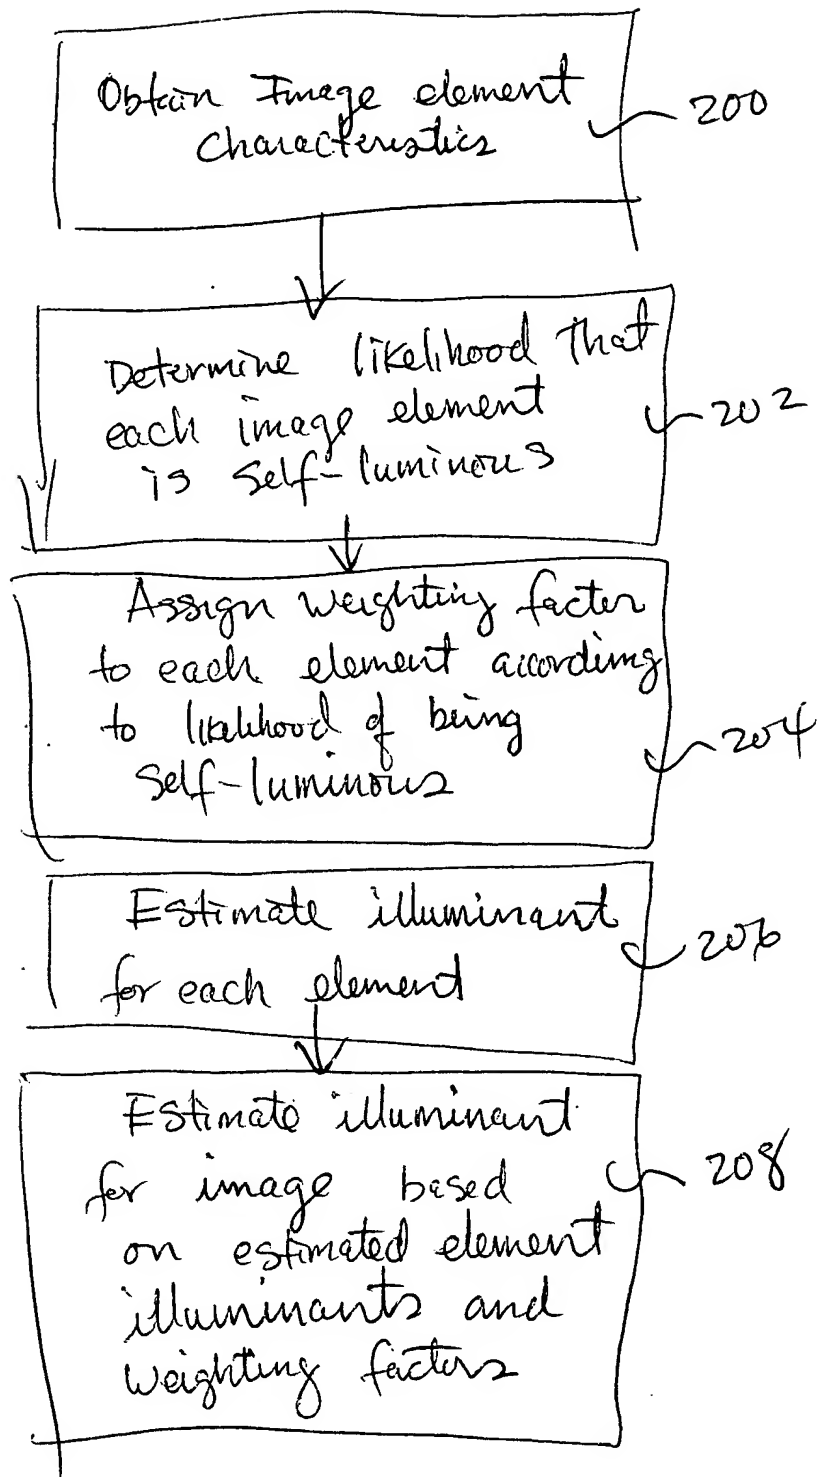 Obtain Image element
Characteristics
200
Determine likelihood that
each image element
is Self-luminous
202
Assign weighting factor
to each element according
to likelihood of being
Self-luminous
204
Estimate illuminant
for each element
206
Estimate illuminant
for image based
on estimated element
illuminants and
Weighting factors
208